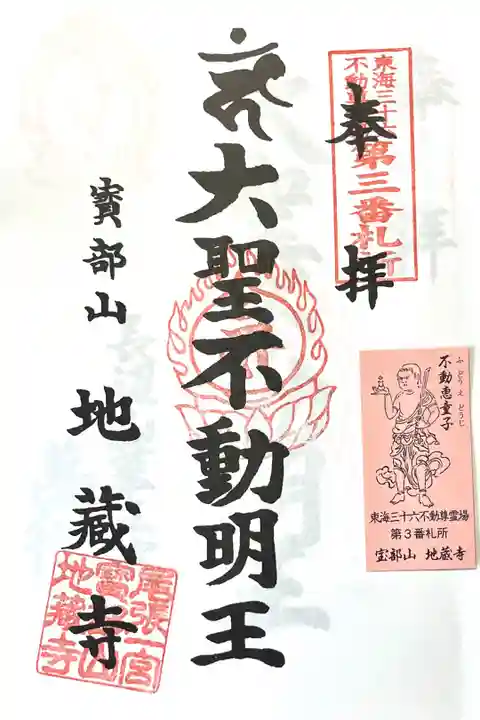 東海三十六
不動尊
第三番札所
奉拝
大聖不動明王
寳部山
地蔵寺
尾張一宮
寳部山
地蔵寺
ふどうえどうじ
不動恵童子
東海三十六不動尊霊場
第3番札所
宝部山 地蔵寺